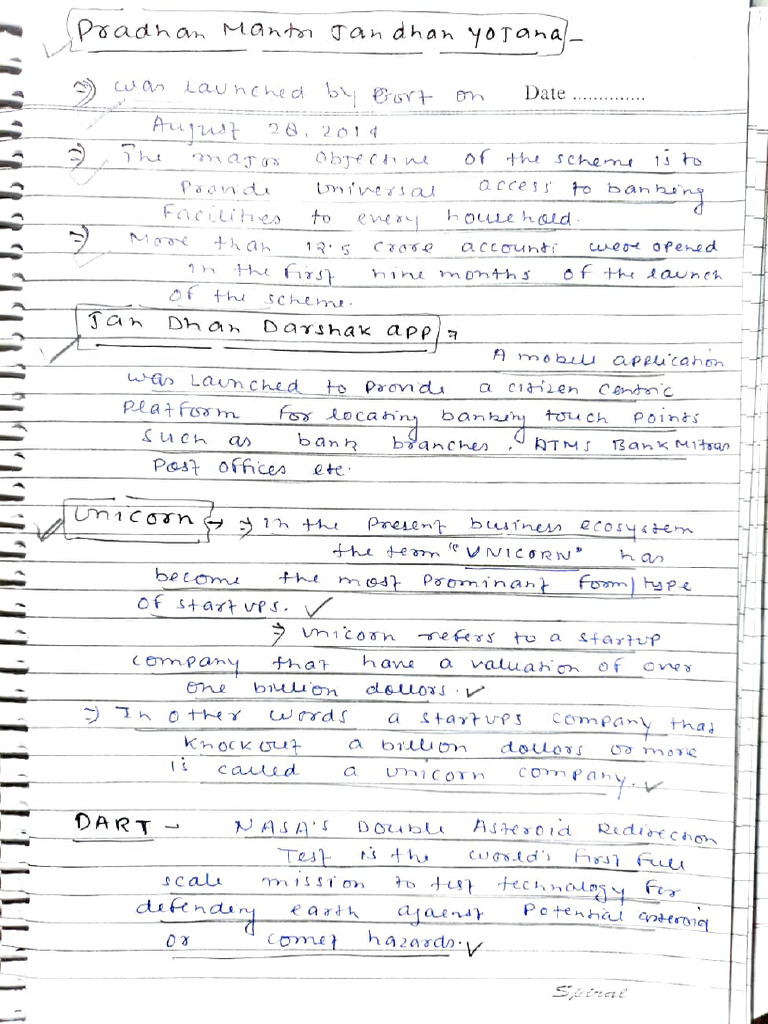 Pradhan Mantri Jan dhan yojana -
⇒ was launched by Govt on Date ..............
August 28, 2014
⇒ The major objective of the scheme is to
Provide Universal access to banking
Facilities to every household.
⇒ More than 12.5 crore accounts were opened
in the first nine months of the launch
of the scheme.
Jan Dhan Darshak app ⇒
A mobile application
was Launched to provide a citizen centric
Platform for locating banking touch points
Such as bank branches, ATMs Bank Mitras
Post offices etc.
Unicorn → ⇒ In the Present business ecosystem
the term "UNICORN" has
become the most Prominant form/type
of startups. ✓
⇒ Unicorn refers to a startup
company that have a valuation of over
one billion dollors. ✓
⇒ In other words a startups company that
knock out a billion dollors or more
is called a unicorn company. ✓
DART - NASA'S Double Asteroid Redirection
Test is the world's first full
scale mission to test technology for
defending earth against Potential asteroid
or comet hazards. ✓
Spiral